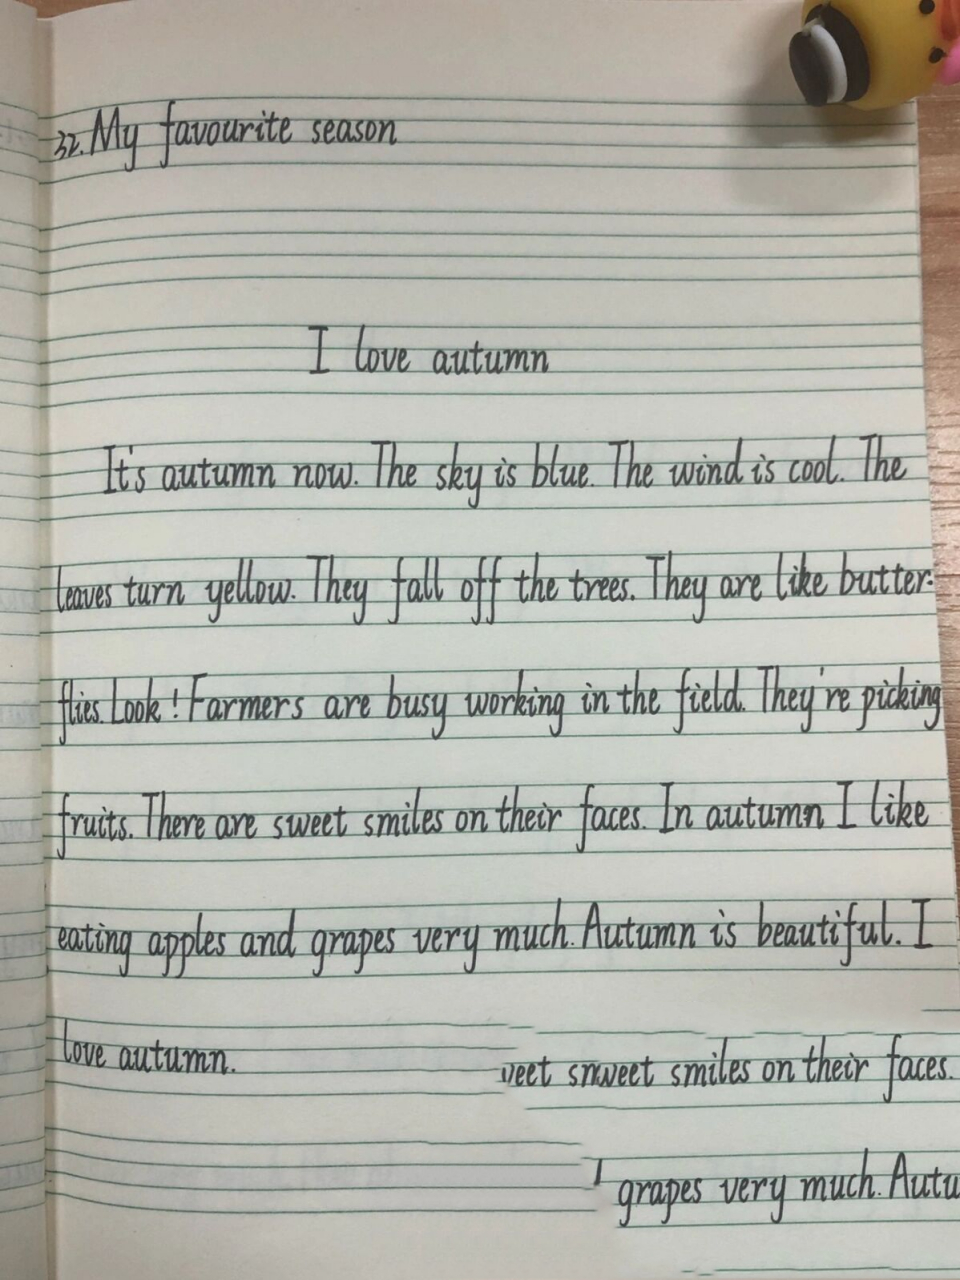 32. My favourite season
I love autumn
It's autumn now. The sky is blue. The wind is cool. The
leaves turn yellow. They fall off the trees. They are like butter-
flies. Look! Farmers are busy working in the field. They're picking
fruits. There are sweet smiles on their faces. In autumn I like
eating apples and grapes very much. Autumn is beautiful. I
love autumn.
smiles on their faces.
grapes very much.